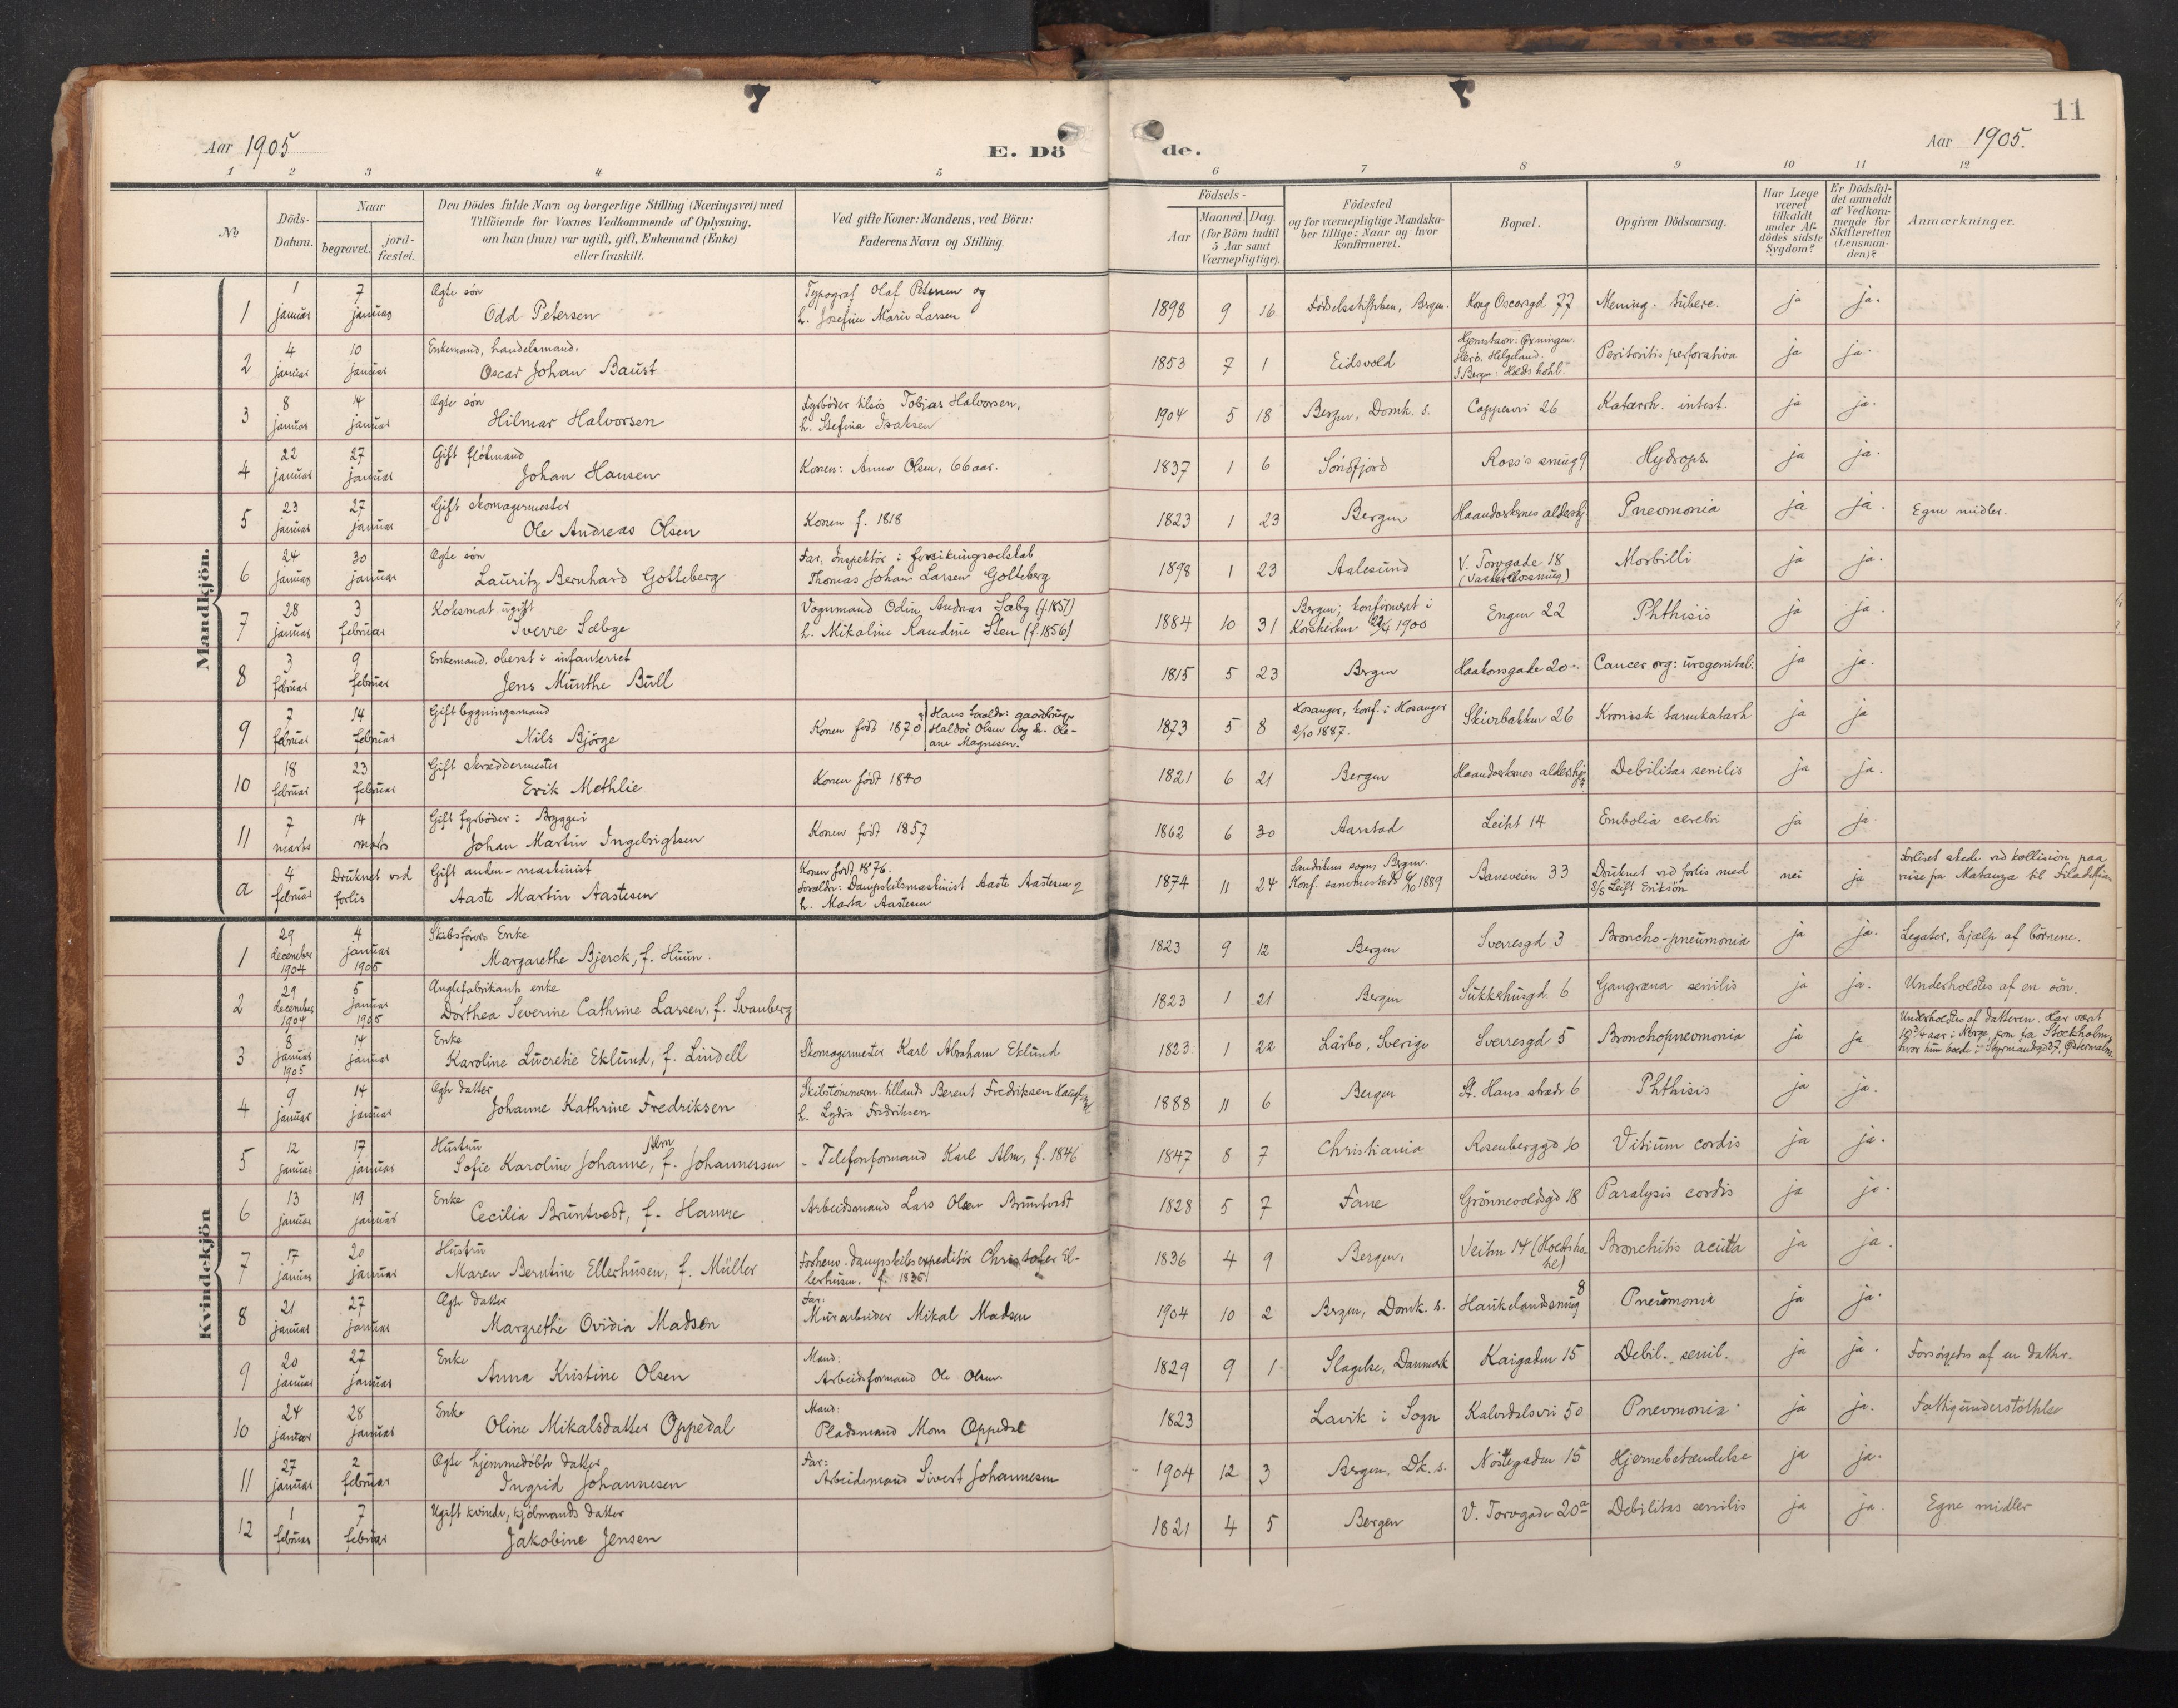 Aar 1905
E. Döde.
11
Aar 1905.
1 2 3 4 5 6 7 8 9 10 11 12
No
Döds-Datum.
Naar
begravet.
jord-fæstet.
Den Dödes fulde Navn og borgerlige Stilling (Næringsvei) med
Tilföiende for Voxnes Vedkommende af Oplysning,
om han (hun) var ugift, gift, Enkemand (Enke)
eller fraskilt.
Ved gifte Koner: Mandens, ved Börn:
Faderens Navn og Stilling.
Födsels-
Aar
Maaned. Dag.
(for Börn indtil
5 Aar samt
Værnepligtige).
Födested
og for værnepligtige Mandska-
ber tillige: Naar og hvor
konfirmeret.
Bopæl.
Opgiven Dödsaarsag.
Har Læge
været
tilkaldt
under Af-
dödes sidste
Sygdom?
Er Dödsfal-
det anmeldt
af Vedkom-
mende for
Skifteretten
(Lensman-
den)?
Anmærkninger.
Mandkjön.
1 1 januar 7 januar Ægte sön
Odd Petersen
Typograf Olaf Petersen og
h. Josefine Marie Larsen
1898 9 16 Födselsstiftelsen, Bergen. Kong Oscarsgd 77 Mening. tuberc. ja ja.
2 4 januar 10 januar Enkemand, handelsmand.
Oscar Johan Baust
1853 7 1 Eidsvold
Hjemstavn:
Herö. Helgeland.
I Bergen: Holdts hotel
Peritonitis perforativa ja ja.
3 8 januar 14 januar Ægte sön
Hilmar Halvorsen
Fyrböder tilsös Tobias Halvorsen,
h. Stefina Isaksen
1904 5 18 Bergen, Domk. s. Cappesvei 26 Katarrh. intest. ja ja.
4 22 januar 27 januar Gift flötmand
Johan Hansen
Konen: Anna Olsen, 66 aar.
1837 1 6 Söndfjord Ross's smug 9 Hydrops. ja ja.
5 23 januar 27 januar Gift skomagermester
Ole Andreas Olsen
Konen f. 1818
1823 1 23 Bergen Haandverkernes aldershj. Pneomonia ja ja. Egne midler.
6 24 januar 30 januar Ægte sön
Lauritz Bernhard Golteberg
Far. Inspektör i forsikringsselskab
Thomas Johan Larsen Golteberg
1898 1 23 Aalesund V. Torvgade 18 Morbilli ja ja.
7 28 januar 3 februar Koksmat. ugift
Sverre Sæbye
Vognmand Odin Andreas Sæby (f.1857)
h. Mikaline Raudine Sten (f.1856)
1884 10 31 Bergen; konfirmert i
Korskirken 22/4 1900
Engen 22 Phthisis ja ja.
8 3 februar 9 februar Enkemand. oberst i infanteriet
Jens Munthe Bull
1815 5 23 Bergen Haakonsgade 20 Cancer org: urogenital. ja ja.
9 7 februar 14 februar Gift bygningsmand
Nils Björge
Konen født 1870
Hans foreldr: gaardbruger
Haldor Olsen og h. Ole-
ane Magnesen.
1873 5 8 Hosanger, konf. i Hosanger
2/10 1887.
Skivebakken 26 Kronisk tarmkatarh ja ja
10 18 februar 23 februar Gift skræddermester
Erik Methlie
Konen født 1840
1821 6 21 Bergen Haandverkernes aldershj. Debilitas senilis ja ja.
11 7 marts 14 marts Gift fyrböder i Bryggeri
Johan Martin Ingebrigtsen
Konen født 1857
1862 6 30 Aarstad Leitet 14 Embolia cerebri ja ja.
a 4 februar Druknet ved forlis Gift anden-maskinist
Aaste Martin Aastesen
Konen født 1876.
Foreldr: Dampskibsmaskinist Aaste Aastesen og
h. Marta Aastesen
1874 11 24 Sandvikens sogn, Bergen.
Konf. sammesteds 6/10 1889
Baneveien 33 Druknet ved forlis med
S/S Leift Eriksön
nei ja
Forliset skede ved kollision paa
reise fra Matanza til Filadelfia
Kvindekjön
1 29 december 1904 4 januar 1905 Skibsförers Enke
Margarethe Bjerck, f. Huun.
1823 9 12 Bergen Sverresgd 3 Broncho-pneumonia ja ja. Legater, hjælp af börnene.
2 29 december 1904 5 januar 1905 Anglefabrikants enke
Dorthea Severine Cathrine Larsen, f. Svanberg
1823 1 21 Bergen Sukkerhusgd. 6 Gangræna senilis ja ja. Underholdtes af en sön.
3 8 januar 1905 14 januar Enke
Karoline Lucretie Eklund, f. Lindell
Skomagermester Karl Abraham Eklund
1823 1 22 Lärbo, Sverige Sverresgd 5 Bronchopneomonia ja ja
Underholdtes af datteren. Har vært
10 3/4 aar i Norge, kom fra Stockholm,
hvor hun boede i Styrmandsgd 37, Østermalm.
4 9 januar 14 januar Ægte datter
Johanne Kathrine Fredriksen
Skibstömmerm. tillands Berent Fredriksen
h. Lydia Fredriksen
1888 11 6 Bergen St. Hans stræde 6 Phthisis ja ja.
5 12 januar 17 januar Hustru
Sofie Karoline Johanne Alm, f. Johannessen
Telefonformand Karl Alm, f. 1846
1847 8 7 Christiania Rosenberggd 10 Vitium cordis ja ja.
6 13 januar 19 januar Enke
Cecilia Bruntvedt, f. Hamre
Arbeidsmand Lars Olsen Bruntvedt
1828 5 7 Fane Grönnevoldsgd 18 Paralysis cordis ja ja.
7 17 januar 20 januar Hustru
Maren Berntine Ellerhusen, f. Müller
Forhenv. dampskibsexpeditör Christofer El-
lerhusen. f. 1835
1836 4 9 Bergen, Veiten 14 Bronchitis acuta ja ja.
8 21 januar 27 januar Ægte datter
Margrethe Ovidia Madsen
Far:
Murarbeider Mikal Madsen
1904 10 2 Bergen, Domk. s. Haukelandsmug 8 Pneumonia ja ja.
9 20 januar 27 januar Enke
Anna Kristine Olsen
Mand:
Arbeidsformand Ole Olsen.
1829 9 1 Slagelse, Danmark Kaigaden 15 Debil. senil. ja ja. Forsörgedes af en datter.
10 24 januar 28 januar Enke
Oline Mikalsdatter Oppedal
Mand:
Pladsmand Mons Oppedal
1823 Lavik i Sogn Kalvedalsvei 50 Pneumonia ja ja. Fattigunderstöttelse
11 27 januar 2 februar Ægte hjemmedöbte datter
Ingrid Johannesen
Far:
Arbeidsmand Sivert Johannesen
1904 12 3 Bergen, Dk. s. Nöstegaden 15 Hjernebetændelse ja ja.
12 1 februar 7 februar Ugift kvinde, kjöbmands datter
Jakobine Jensen
1821 4 5 Bergen V. Torvgade 20a Debilitas senilis ja ja. Egne midler